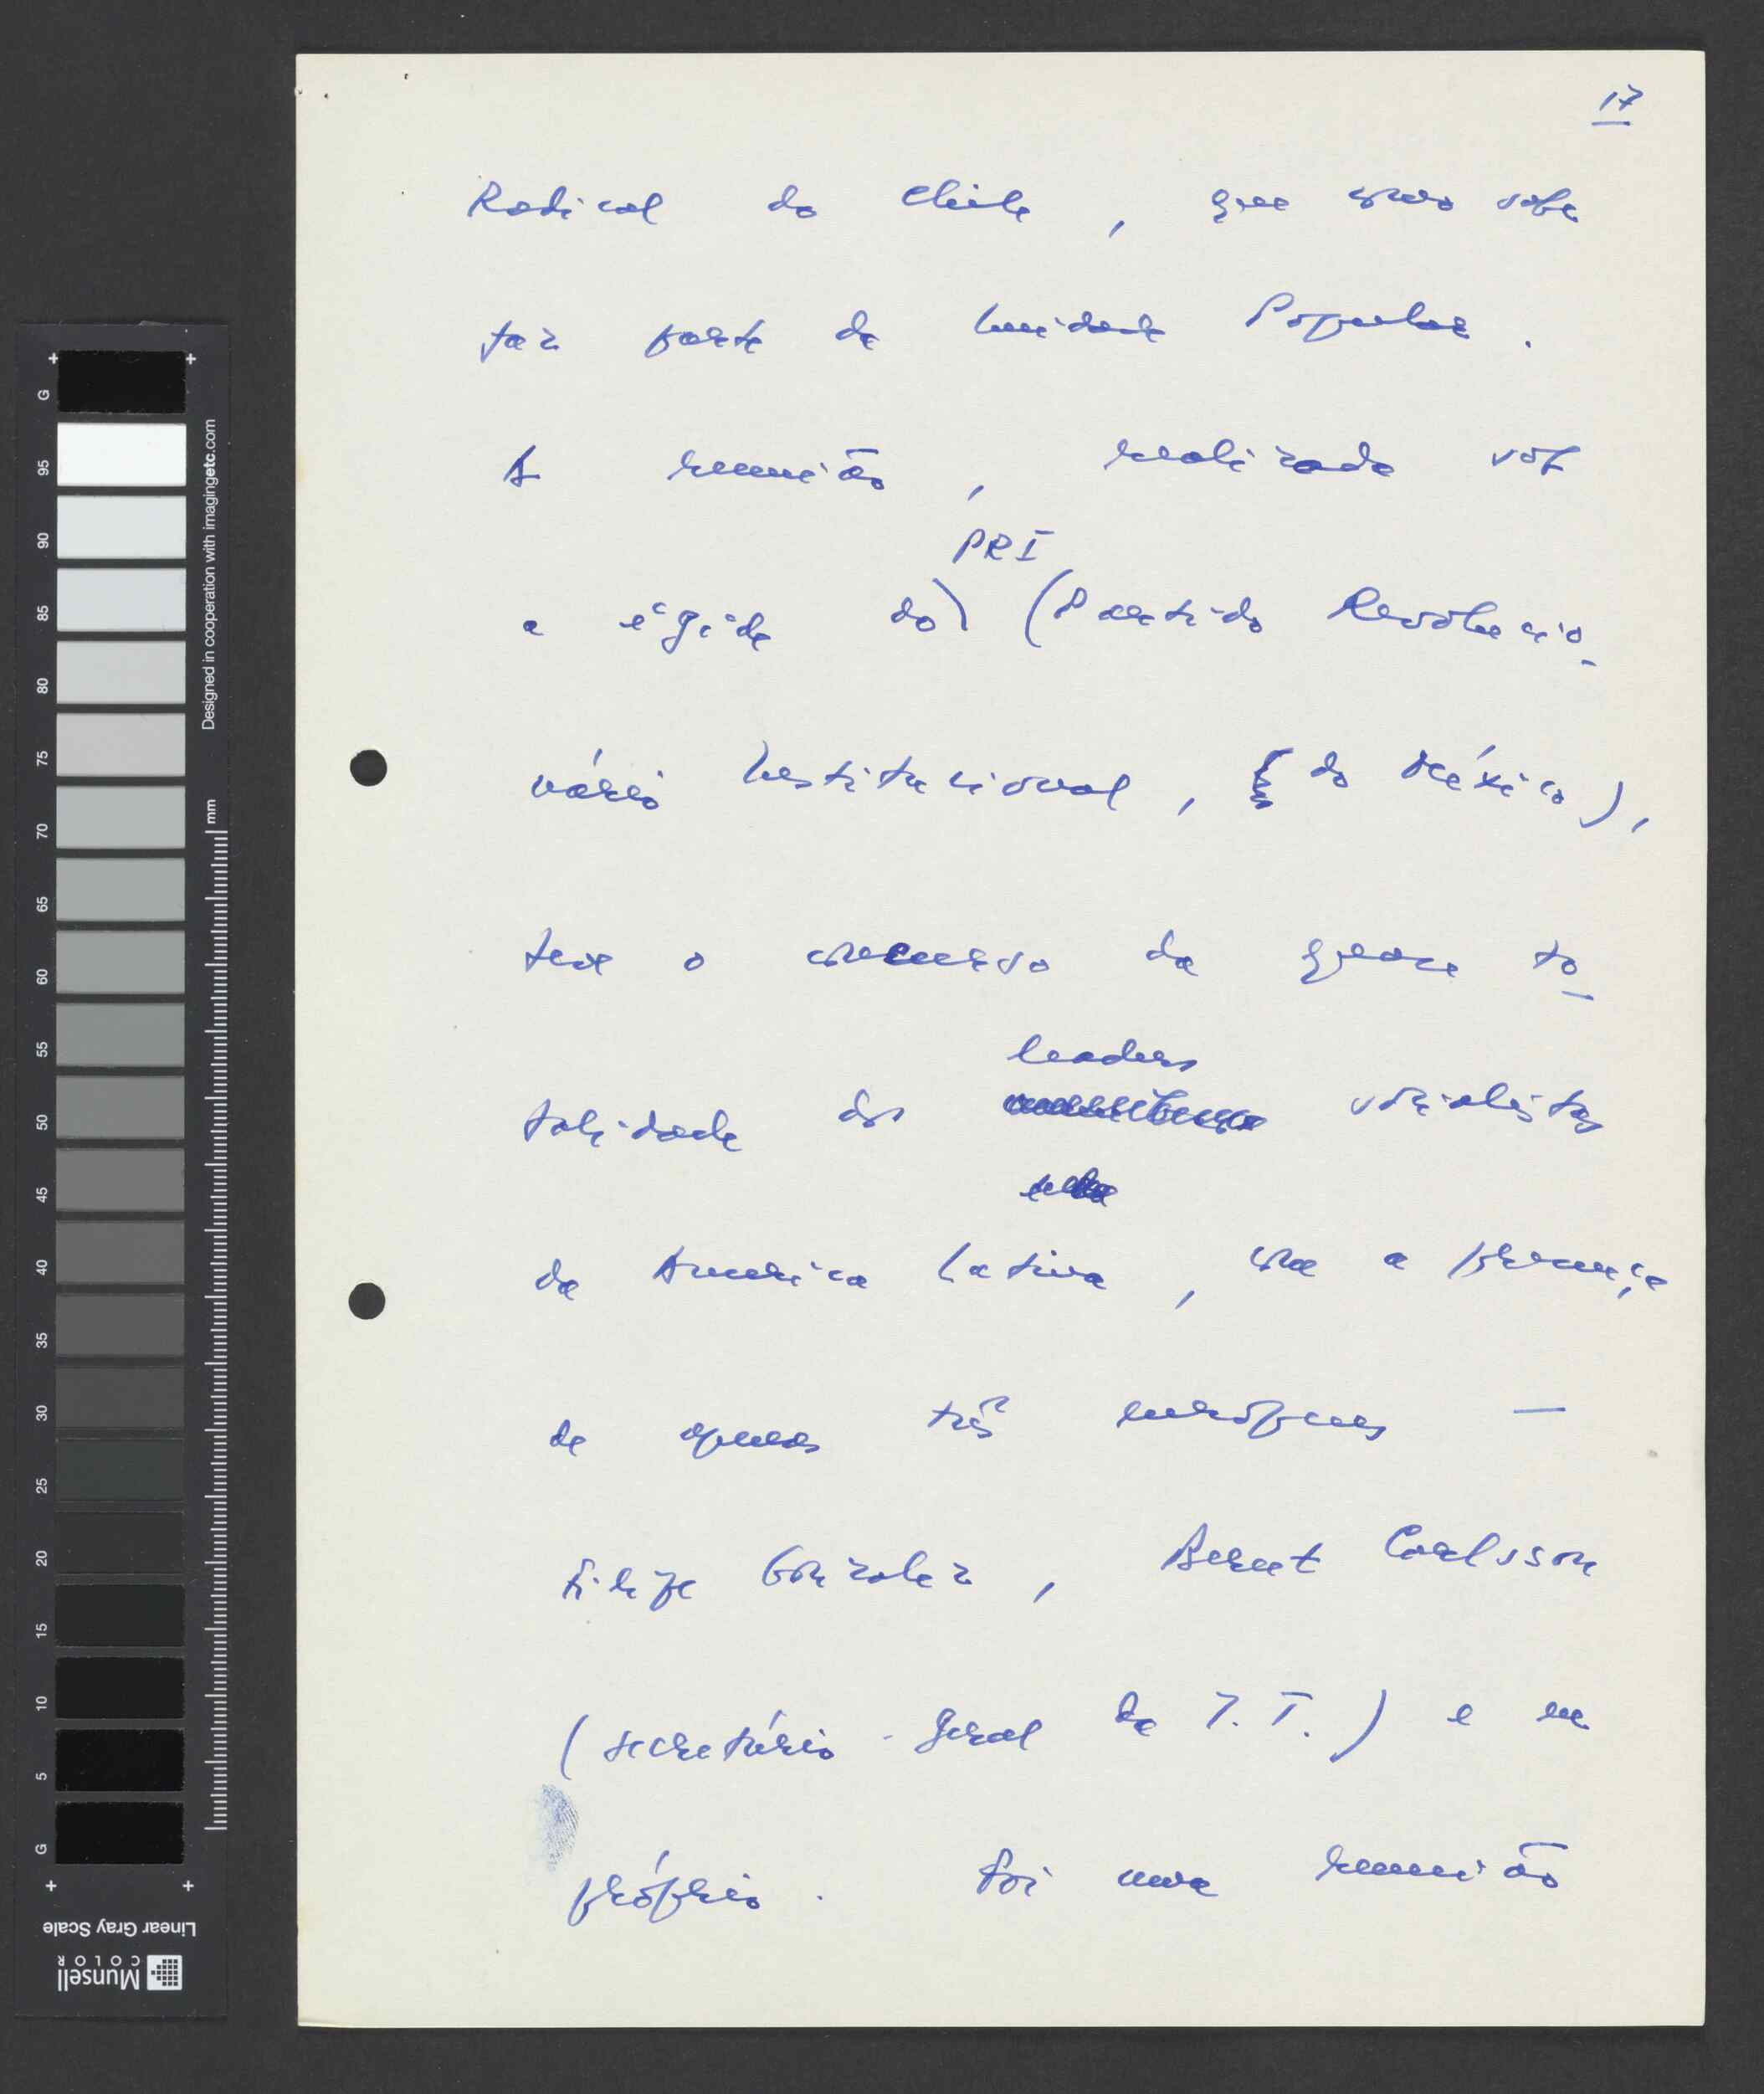 17
Radical do Chile, que como sabe
faz parte da Unidade Popular.
A reunião, realizada sob
PRI
a égide do (Partido Revolucio-
nário Institucional, do México),
teve o concurso da quase to-
leaders
talidade dos socialistas
da America Latina, com a presença
de apenas três europeus —
Filipe Gonzalez, Bernt Carlsson
(secretário-geral da I.S.) e eu
próprio. Foi uma reunião
G
95
90
85
80
75
70
65
60
55
50
45
40
35
30
25
20
15
10
5
G
Designed in cooperation with imagingetc.com
mm
Linear Gray Scale
Munsell
COLOR